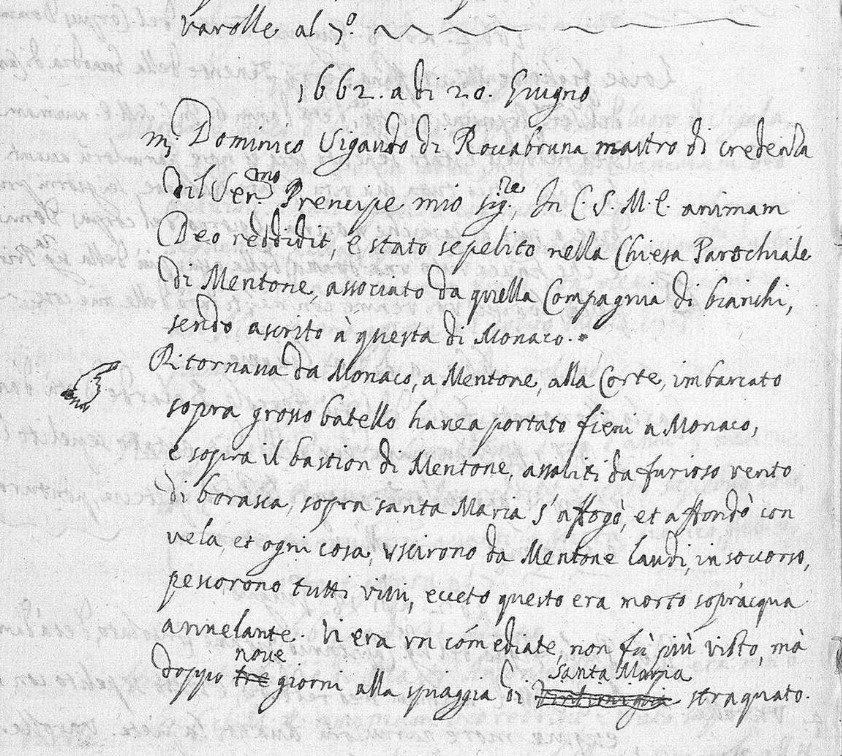 varolle al 7º.
1662. a di 20. Giugno
mʳ Dominico Vigaudo di Roccabruna mastro di credenza
dil Serᵐᵒ Prencipe mio sigʳᵉ, In C. S. M. E. animam
Deo reddidit, e stato sepelito nella Chiesa Parochiale
di Mentone, associato da quella Compagnia di bianchi,
sendo ascrito a' questa di Monaco.
Ritornava da Monaco, a Mentone, alla Corte, imbarcato
sopra grosso batello havea portato fieni a Monaco,
e sopra il bastion di Mentone, assaliti da furioso vento
di borasca, sopra santa Maria s'affogò, et affondò con
vela, et ogni cosa, uscirono da Mentone laudi, in soccorso,
pescorono tutti vivi, ecceto questo era morto sopracqua
annelante. Vi era un comediate, non fù più visto, mà
doppo tre nove giorni alla spiaggia di Santa Maria straquato.